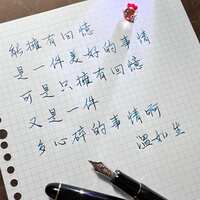 能擁有回憶
是一件美好的事情
可是只擁有回憶
又是一件
多心碎的事情啊
溫如生